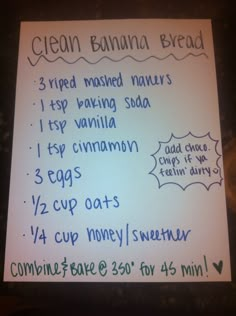 Clean Banana Bread
· 3 riped mashed naners
· 1 tsp baking soda
· 1 tsp vanilla
· 1 tsp cinnamon
· 3 eggs
· 1/2 cup oats
· 1/4 cup honey/sweetner
add choco.
chips if ya
feelin' dirty
Combine & Bake @ 350° for 45 min! ♥